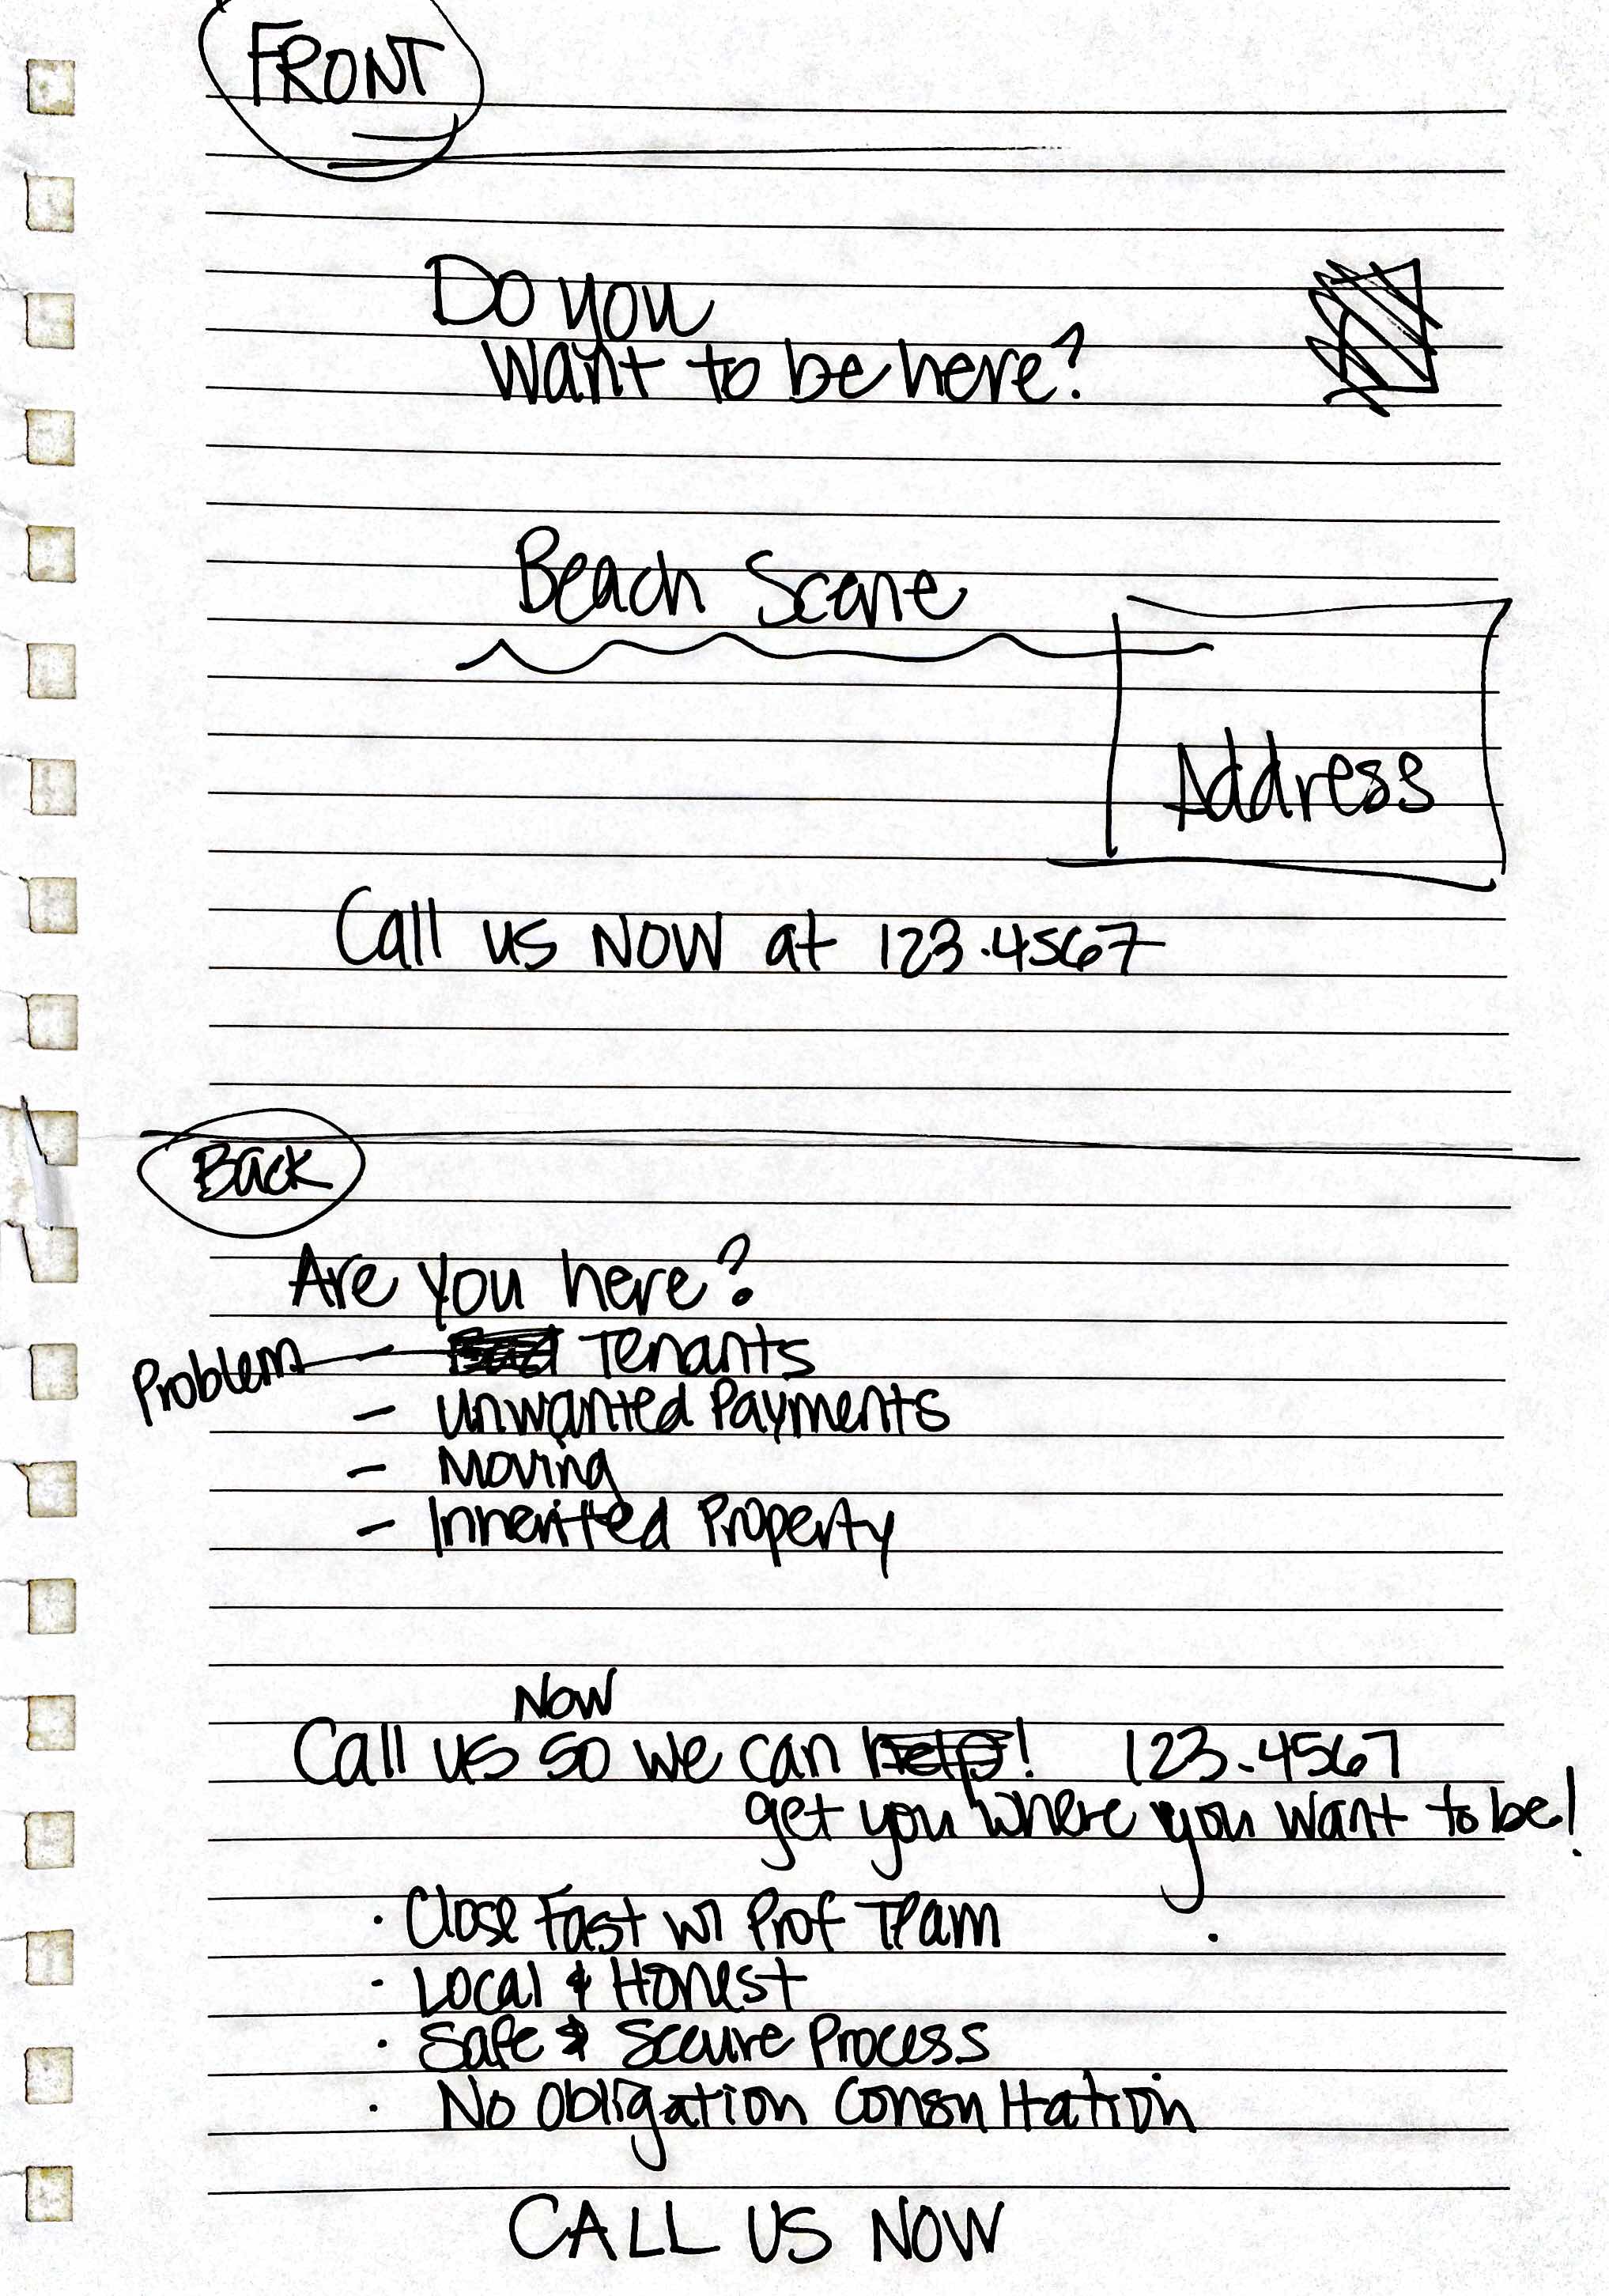 FRONT
Do you
want to be here?
Beach Scene
Address
Call us NOW at 123.4567
Back
Are you here?
Problem - Tenants
- Unwanted Payments
- Moving
- Inherited Property
Now
Call us so we can help! 123.4567
get you where you want to be!
· Close Fast w/ Prof Team
· Local & Honest
· Safe & Secure Process
· No Obligation Consultation
CALL US NOW